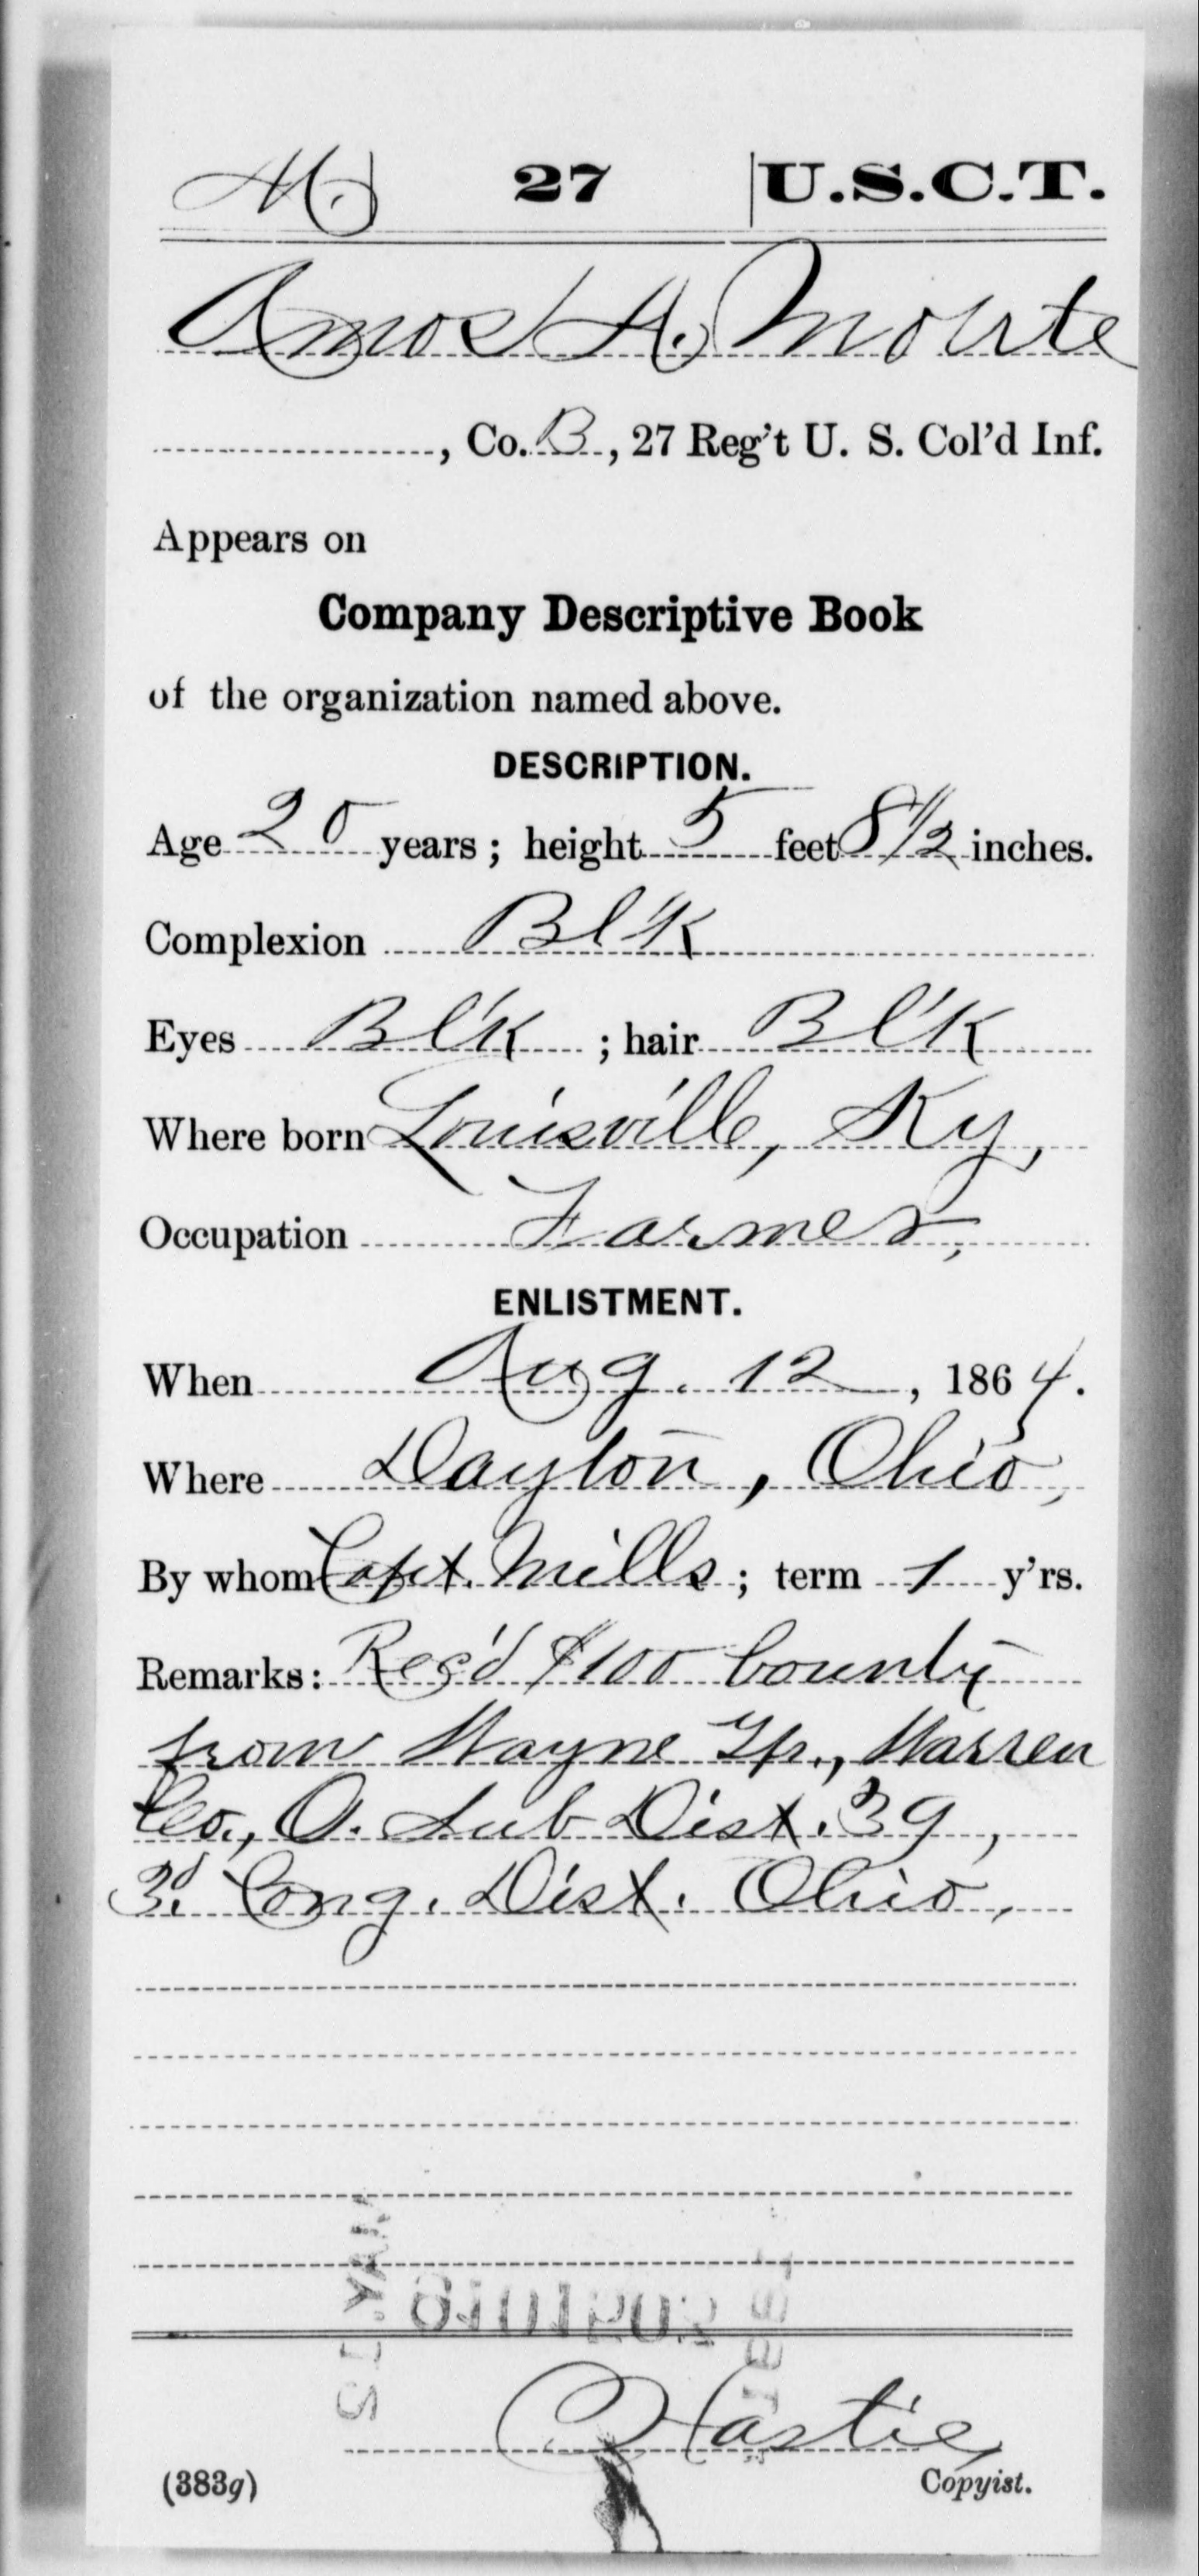 M 27 U.S.C.T.
Amos H. Monte
, Co. B, 27 Reg't U. S. Col'd Inf.
Appears on
Company Descriptive Book
of the organization named above.
DESCRIPTION.
Age 20 years; height 5 feet 8 1/2 inches.
Complexion Bl'k
Eyes Bl'k; hair Bl'k
Where born Louisville, Ky,
Occupation Farmer,
ENLISTMENT.
When Aug. 12, 1864.
Where Dayton, Ohio,
By whom Capt. Mills; term 1 y'rs.
Remarks: Rec'd $100 bounty
from Wayne Tp., Warren
Co., O. Sub Dist. 39,
3d Cong. Dist. Ohio,
Hastie
(383g) Copyist.